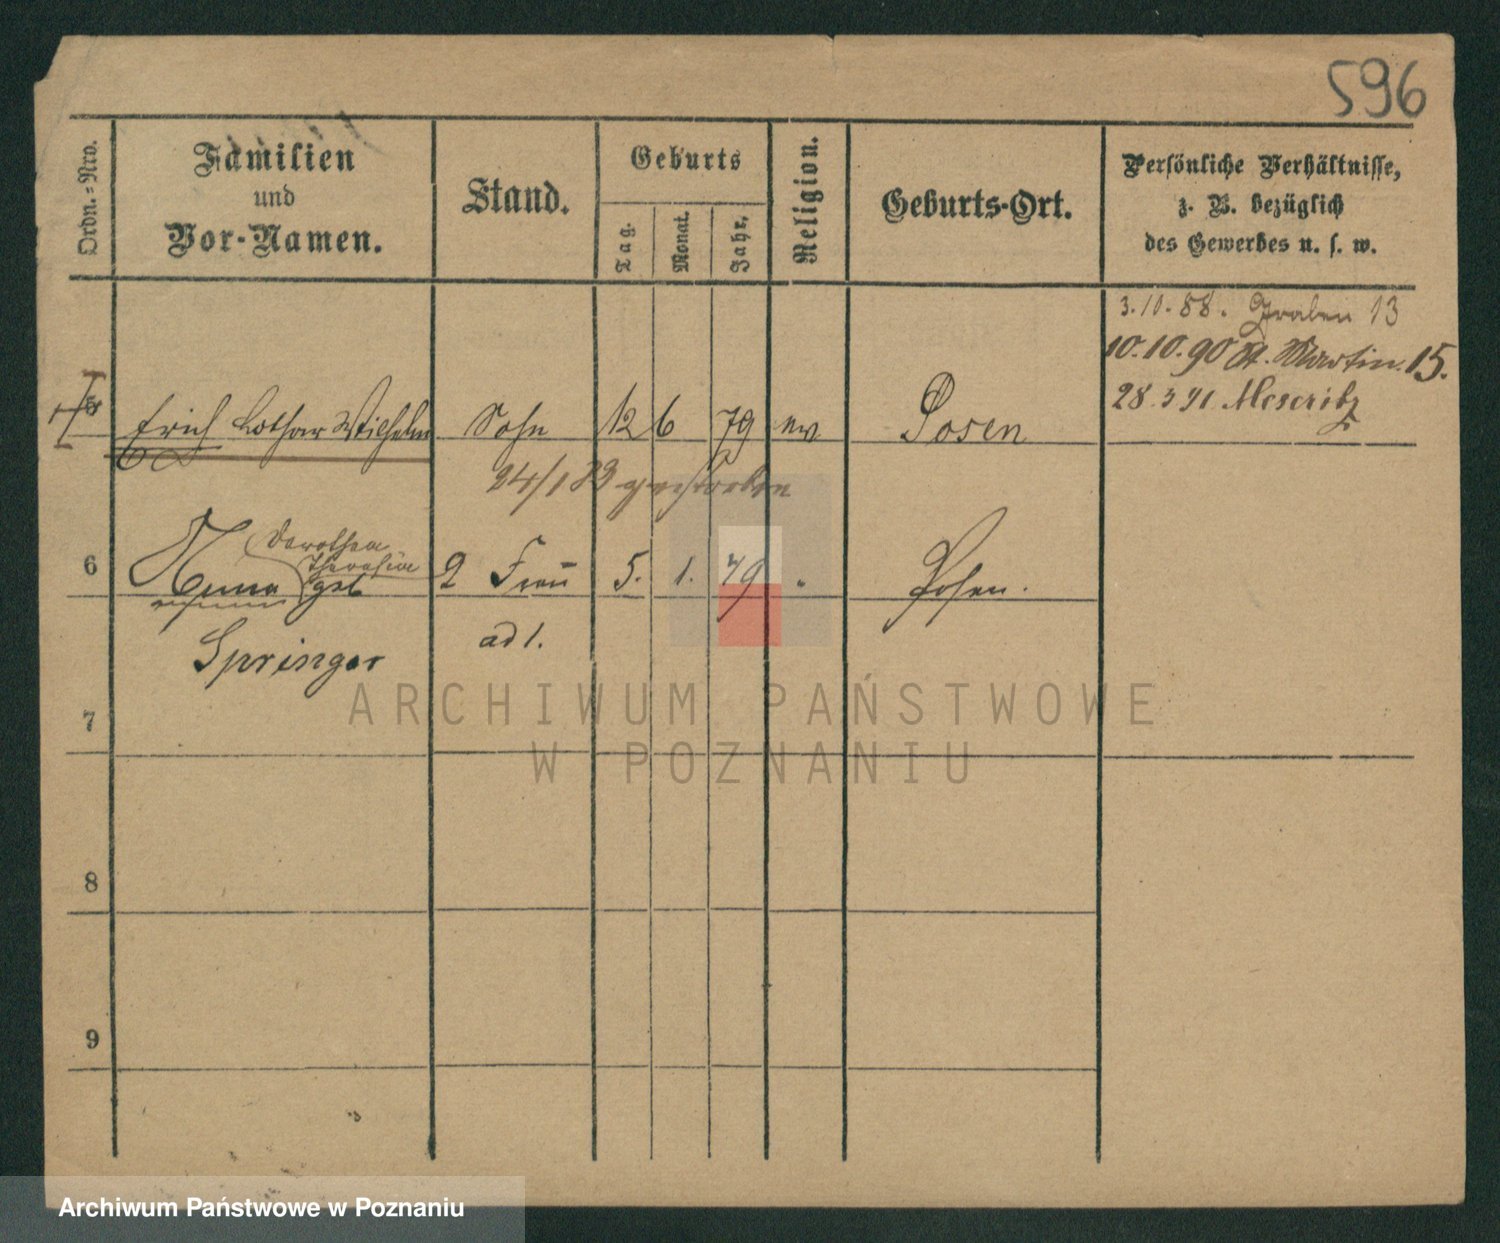 596
Ordn.=Nro.
Familien
und
Vor-Namen.
Stand.
Geburts
Tag.
Monat.
Jahr.
Religion.
Geburts-Ort.
Persönliche Verhältnisse,
z. B. bezüglich
des Gewerbes u. s. w.
3.10.88. Graben 13
10.10.90 St. Martin 15.
28 3 91 Meseritz
5 Erich Lothar Wilhelm Sohn 12 6 79 ev Posen
24/1 83 gestorben
Dorothea
Theresia
6 Anna geb 2 Frau 5. 1. 79 " Posen.
Springer ad 1.
7
8
9
ARCHIWUM PAŃSTWOWE
W POZNANIU
Archiwum Państwowe w Poznaniu